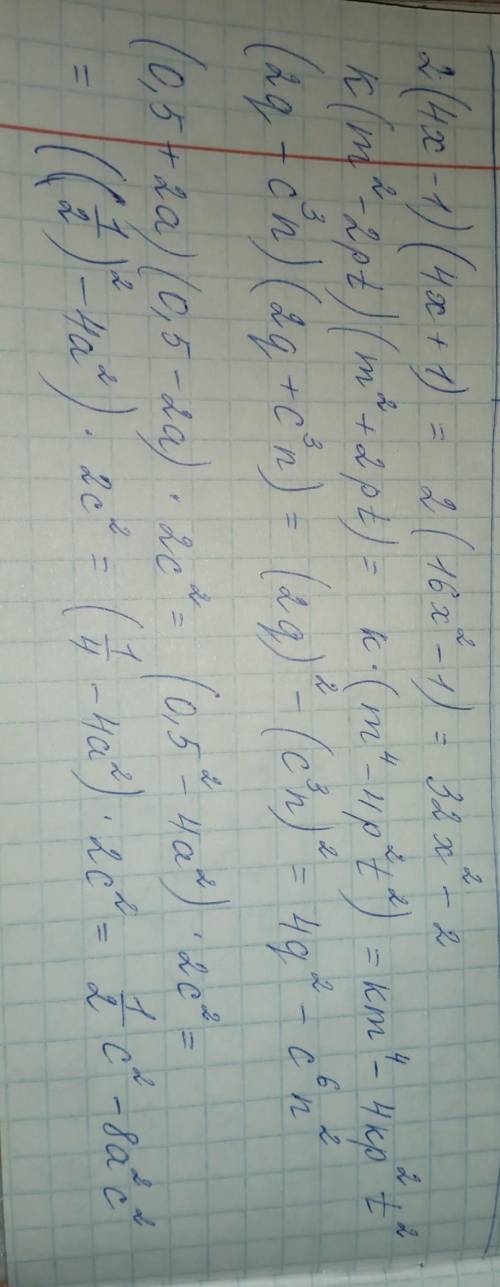 2(4x-1)(4x+1) = 2(16x²-1) = 32x²-2
k(m²-2pt)(m²+2pt) = k·(m⁴-4p²t²) = km⁴-4kp²t²
(2q-c³n)(2q+c³n) = (2q)²-(c³n)² = 4q²-c⁶n²
(0,5+2a)(0,5-2a)·2c² = (0,5²-4a²)·2c² =
= ((1/2)²-4a²)·2c² = (1/4-4a²)·2c² = 1/2c²-8a²c²